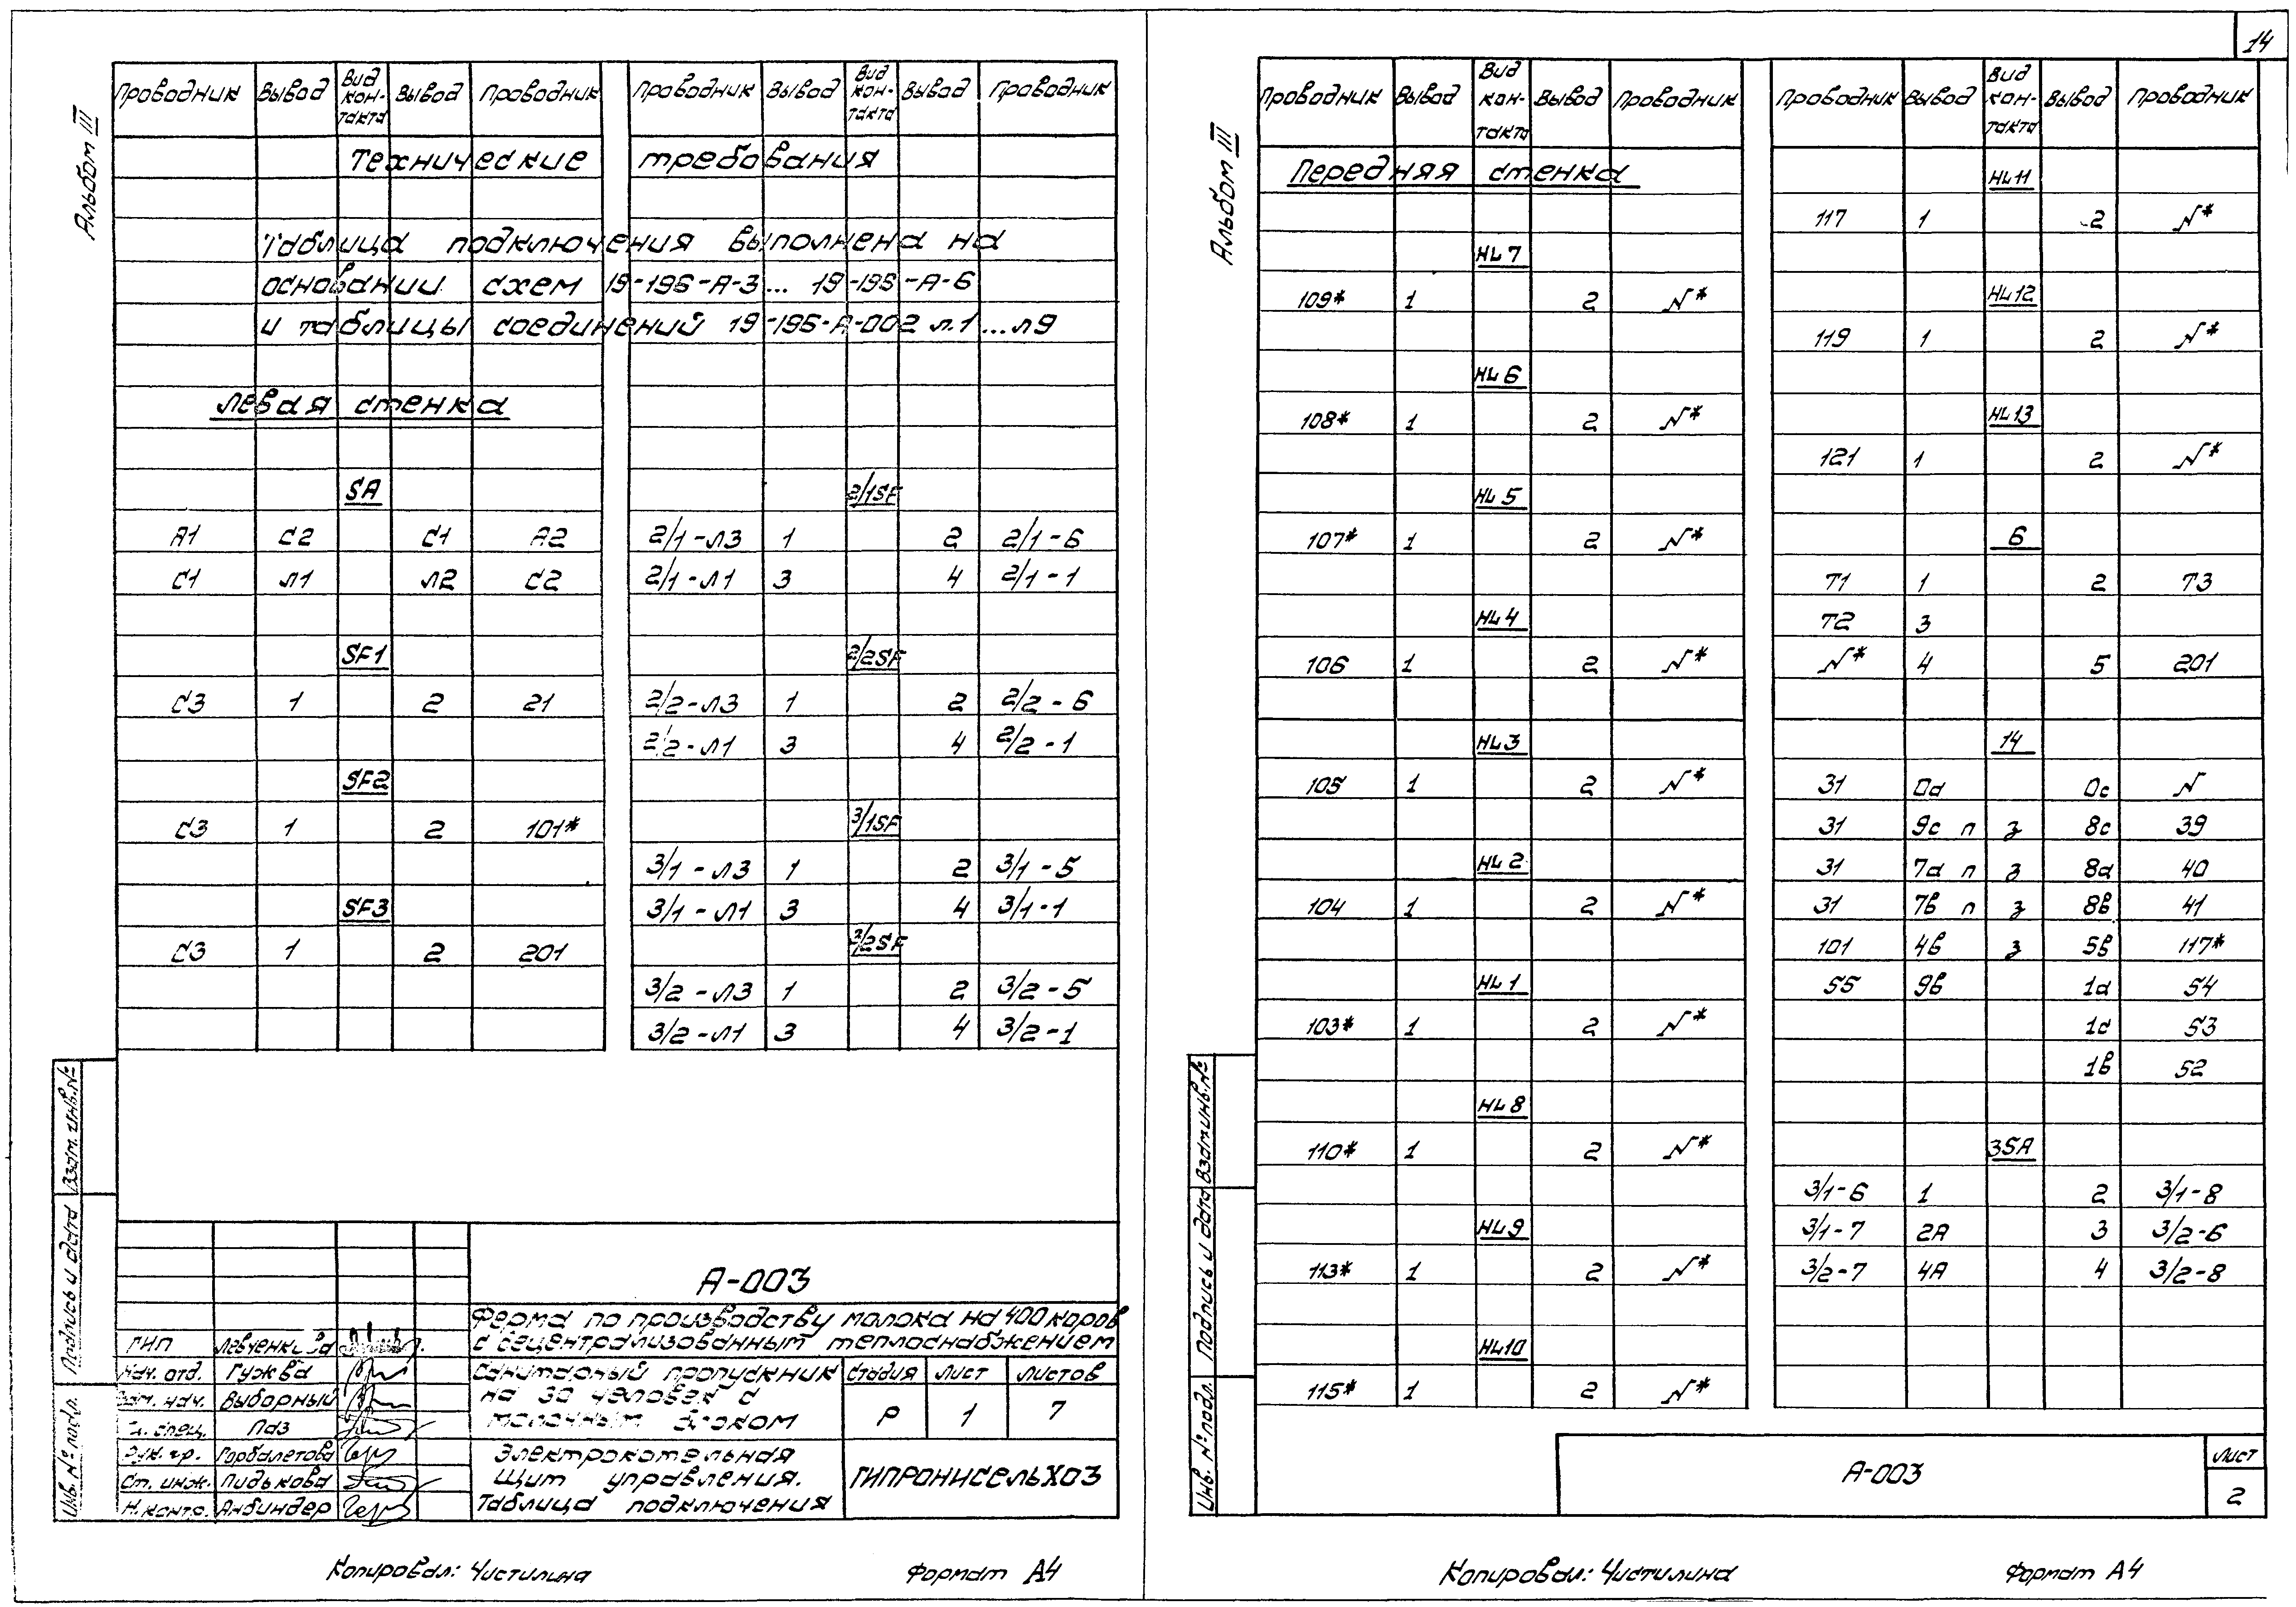 Альбом III
Проводник Вывод Вид контакта Вывод Проводник Проводник Вывод Вид контакта Вывод Проводник
Технические требования
Таблица подключения выполнена на
основании схем 19-196-А-3... 19-196-А-6
и таблицы соединений 19-196-А-002 л.1...л9
Левая стенка
SA
А1 С2 С1 А2
С1 Л1 Л2 С2
SF1
С3 1 2 21
SF2
С3 1 2 101*
SF3
С3 1 2 201
2/1SF
2/1-Л3 1 2 2/1-6
2/1-Л1 3 4 2/1-1
2/2SF
2/2-Л3 1 2 2/2-6
2/2-Л1 3 4 2/2-1
3/1SF
3/1-Л3 1 2 3/1-5
3/1-Л1 3 4 3/1-1
3/2SF
3/2-Л3 1 2 3/2-5
3/2-Л1 3 4 3/2-1
Взам. инв. №
Подпись и дата
Инв. № подл.
А-003
Ферма по производству молока на 400 коров
с децентрализованным теплоснабжением
ГИП Левченкова
Нач. отд. Гужва
Зам. нач. Выборный
Гл. спец. Паз
Рук. гр. Горбалетова
Ст. инж. Пидькова
Н. контр. Анбиндер
Санитарный пропускник
на 30 человек с
молочным блоком
Стадия Лист Листов
Р 1 7
Электрокотельная
Щит управления.
Таблица подключения
ГИПРОНИСЕЛЬХОЗ
Копировал: Чистилина Формат А4
14
Альбом III
Проводник Вывод Вид контакта Вывод Проводник Проводник Вывод Вид контакта Вывод Проводник
Передняя стенка
HL7
109* 1 2 N*
HL6
108* 1 2 N*
HL5
107* 1 2 N*
HL4
106 1 2 N*
HL3
105 1 2 N*
HL2
104 1 2 N*
HL1
103* 1 2 N*
HL8
110* 1 2 N*
HL9
113* 1 2 N*
HL10
115* 1 2 N*
HL11
117 1 2 N*
HL12
119 1 2 N*
HL13
121 1 2 N*
6
Т1 1 2 Т3
Т2 3
N* 4 5 201
14
31 0d 0c N
31 9c п з 8c 39
31 7d п з 8d 40
31 7в п з 8в 41
101 4в з 5в 117*
55 9в 1d 54
1d 53
1в 52
3SA
3/1-6 1 2 3/1-8
3/1-7 2А 3 3/2-6
3/2-7 4А 4 3/2-8
Взам. инв. №
Подпись и дата
Инв. № подл.
А-003
Лист
2
Копировал: Чистилина Формат А4